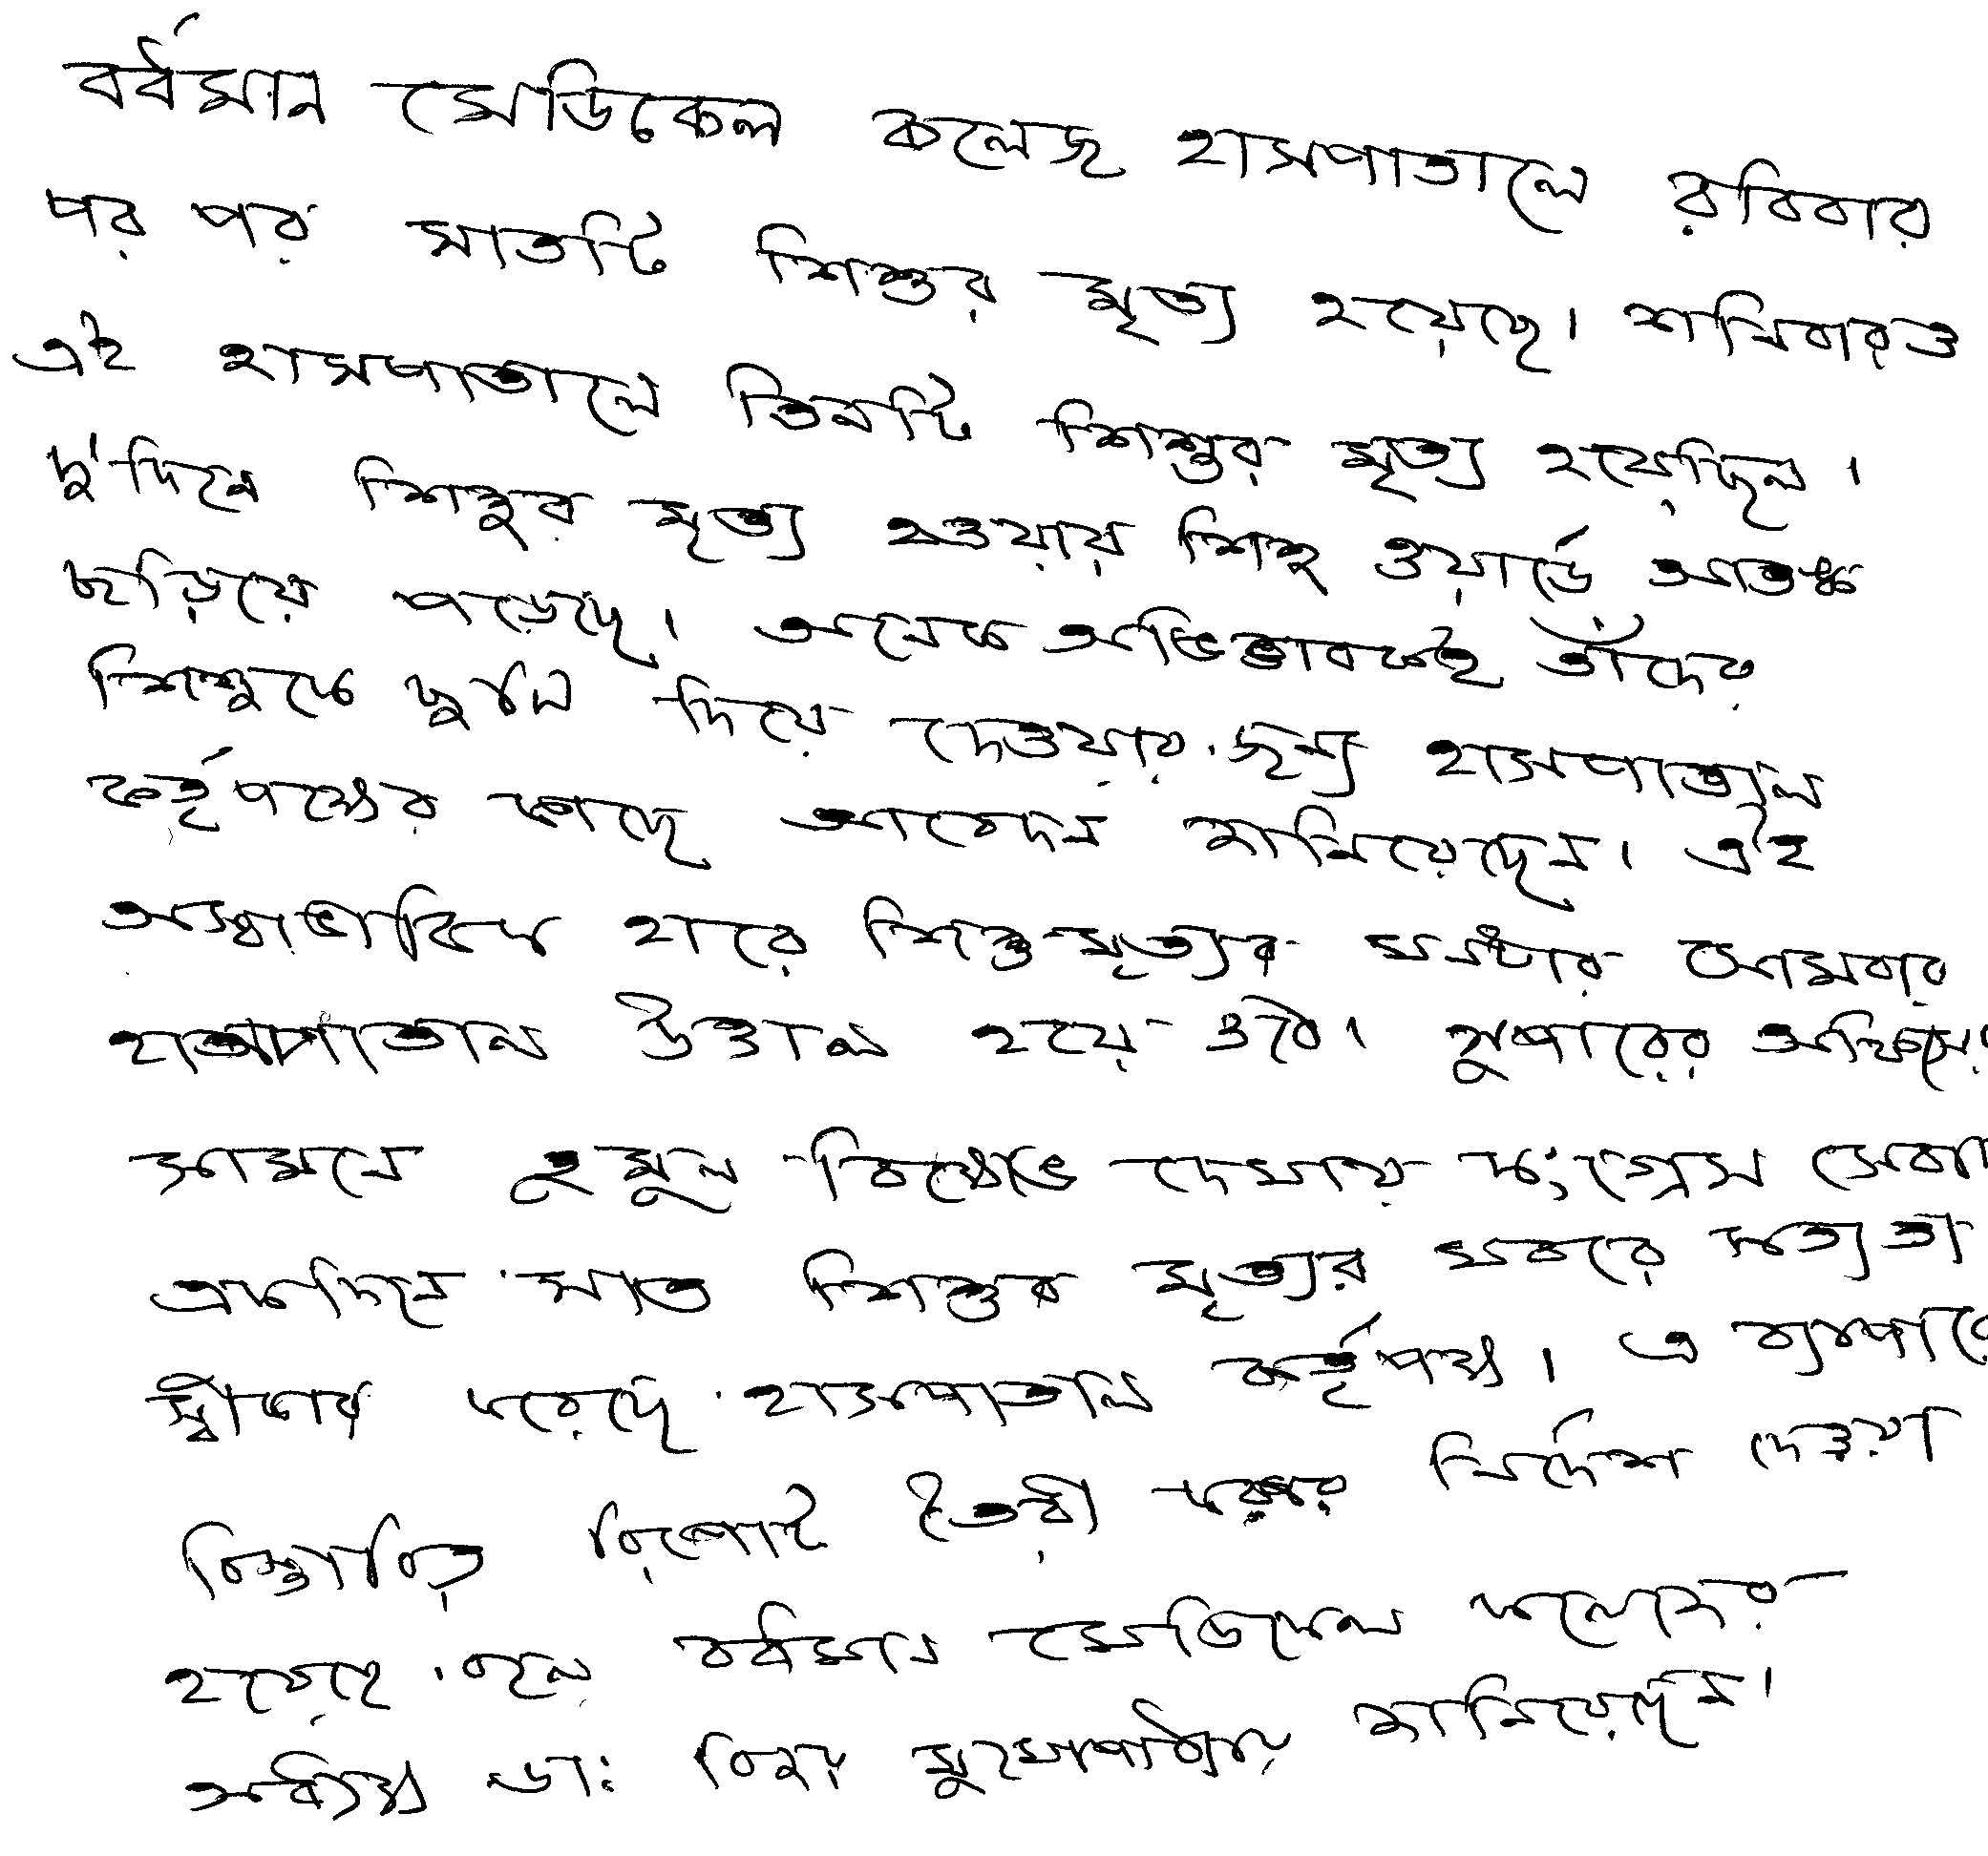 বর্ধমান মেডিকেল কলেজ হাসপাতালে রবিবার
পর পর সাতটি শিশুর মৃত্যু হয়েছে। শনিবারও
এই হাসপাতালে তিনটি শিশুর মৃত্যু হয়েছিল।
দু'দিনে শিশুর মৃত্যু হওয়ায় শিশু ওয়ার্ডে আতঙ্ক
ছড়িয়ে পড়েছে। অনেক অভিভাবকই তাঁদের
শিশুকে ছুটি দিয়ে দেওয়ার জন্য হাসপাতাল
কর্তৃপক্ষের কাছে আবেদন জানিয়েছেন। এই
অস্বাভাবিক হারে শিশুমৃত্যুর খবর আসার
হাসপাতাল উত্তাল হয়ে ওঠে। সুপারের অফিসের
সামনে তুমুল বিক্ষোভ দেখায় কংগ্রেস সেবা
একদিনে সাত শিশুর মৃত্যুর খবরের সত্যতা
স্বীকার করেছে হাসপাতাল কর্তৃপক্ষ। এ ব্যাপারে
বিস্তারিত রিপোর্ট তৈরী করার নির্দেশ দেওয়া
হয়েছে বলে বর্ধমান মেডিকেল কলেজের
অধ্যক্ষ ডা: মুখোপাধ্যায় জানিয়েছেন।